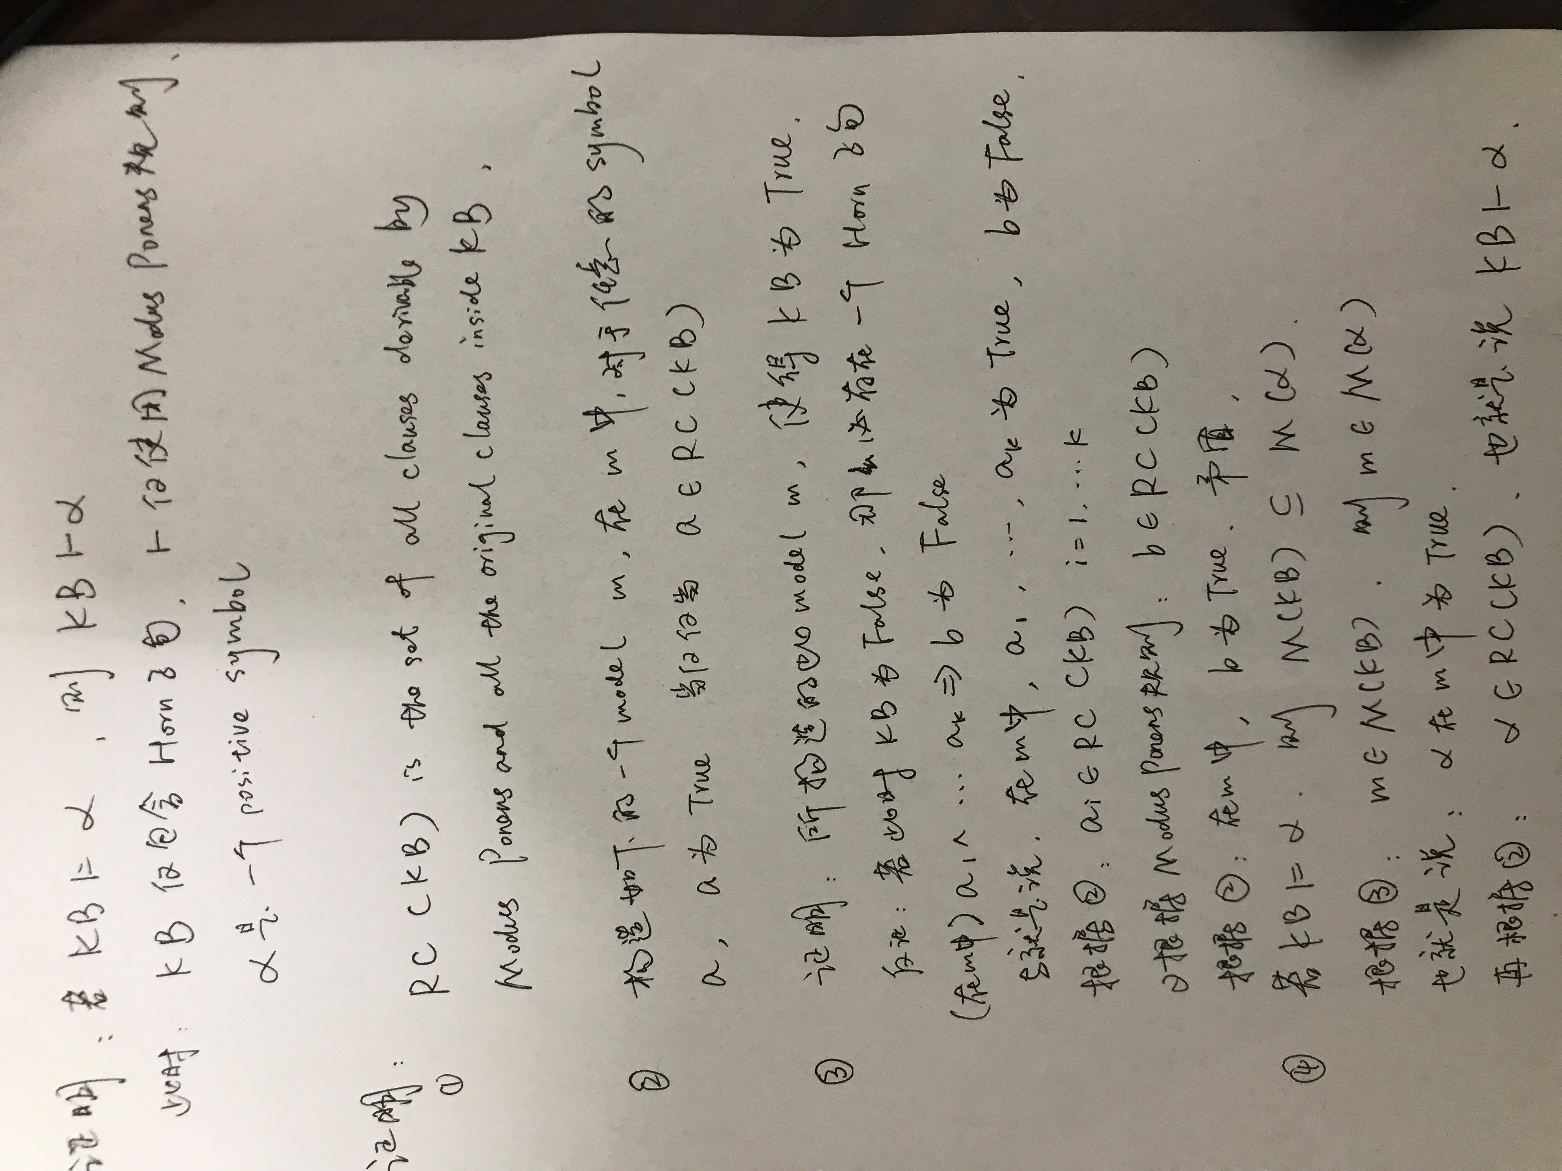 证明：若 KB ⊨ α，则 KB ⊢ α
此时：KB 仅包含 Horn 子句，⊢ 仅使用 Modus Ponens 规则.
α是一个 positive symbol
证明：
① RC(KB) is the set of all clauses derivable by
Modus Ponens and all the original clauses inside KB.
② 构造如下的一个 model m，在 m 中，对于任意的 symbol
a，a 为 True 当仅仅当 a ∈ RC(KB)
③ 证明：所构造的 model m，使得 KB 为 True.
反证：若此时 KB 为 False，那么必存在一个 Horn 子句
(在m中) a₁∧…aₖ ⇒ b 为 False
也就是说，在m中，a₁，…，aₖ 为 True，b 为 False.
根据②：aᵢ ∈ RC(KB) i=1.…k
又根据 Modus Ponens 规则：b ∈ RC(KB)
根据②：在m中，b为True. 矛盾.
④ 若 KB ⊨ α. 则 M(KB) ⊆ M(α).
根据③：m ∈ M(KB). 则 m ∈ M(α)
也就是说：α在m中为True.
再根据②：α ∈ RC(KB). 也就是说 KB ⊢ α.